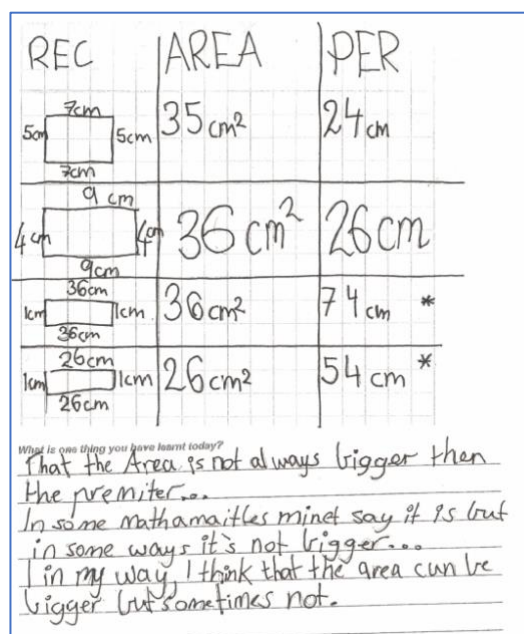 REC AREA PER
7cm
5cm 5cm 35cm² 24cm
7cm
9cm
4cm 4cm 36cm² 26cm
9cm
36cm
1cm 1cm 36cm² 74cm *
36cm
26cm
1cm 1cm 26cm² 54cm *
26cm
What is one thing you have learnt today?
That the Area is not always bigger then
the premiter...
In some mathamaitles minet say it is but
in some ways it's not bigger...
I in my way, I think that the area can be
bigger but sometimes not.